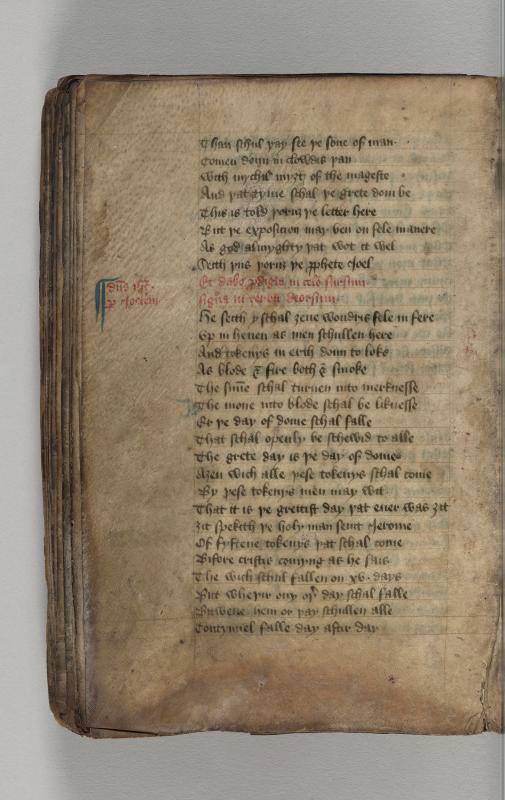 Than schul þay see þe sone of man
Comen doun in clowdis þan
With mychil myȝt of the mageste
And þat tyme schal þe grete dom be
This is told þoruȝ þe letter here
But þe exposition may ben on fele manere
As god almyghty þat wot it wel
Seith þus þoruȝ þe p̄phete Joel
Et dabo p̄digia in celo sursum
signa in terra deorsum
He seith y schal ȝeue wondris fele in fere
Vp in heuen as men schullen here
And tokenys in erth doun to loke
As blode & fire both & smoke
The sūne schal turnen into merknesse
The mone into blode schal be liknesse
Er þe day of dome schal falle
That schal openly be schewid to alle
The grete day is þe day of dome
Aȝen wich alle þese tokenys schal come
By þese tokenys men may wit
That it is þe grettist day þat euer was ȝit
Ȝit spekith þe holy man seint Jerome
Of fyftene tokenys þat schal come
Bifore cristis comyng as he sais
The wich schul fallen on xv. days
But wheþir ony oþ̄ day schal falle
Bitwene hem or þay schullen alle
Contynuel falle day aftir day
dn̄s
p̄ Joelem